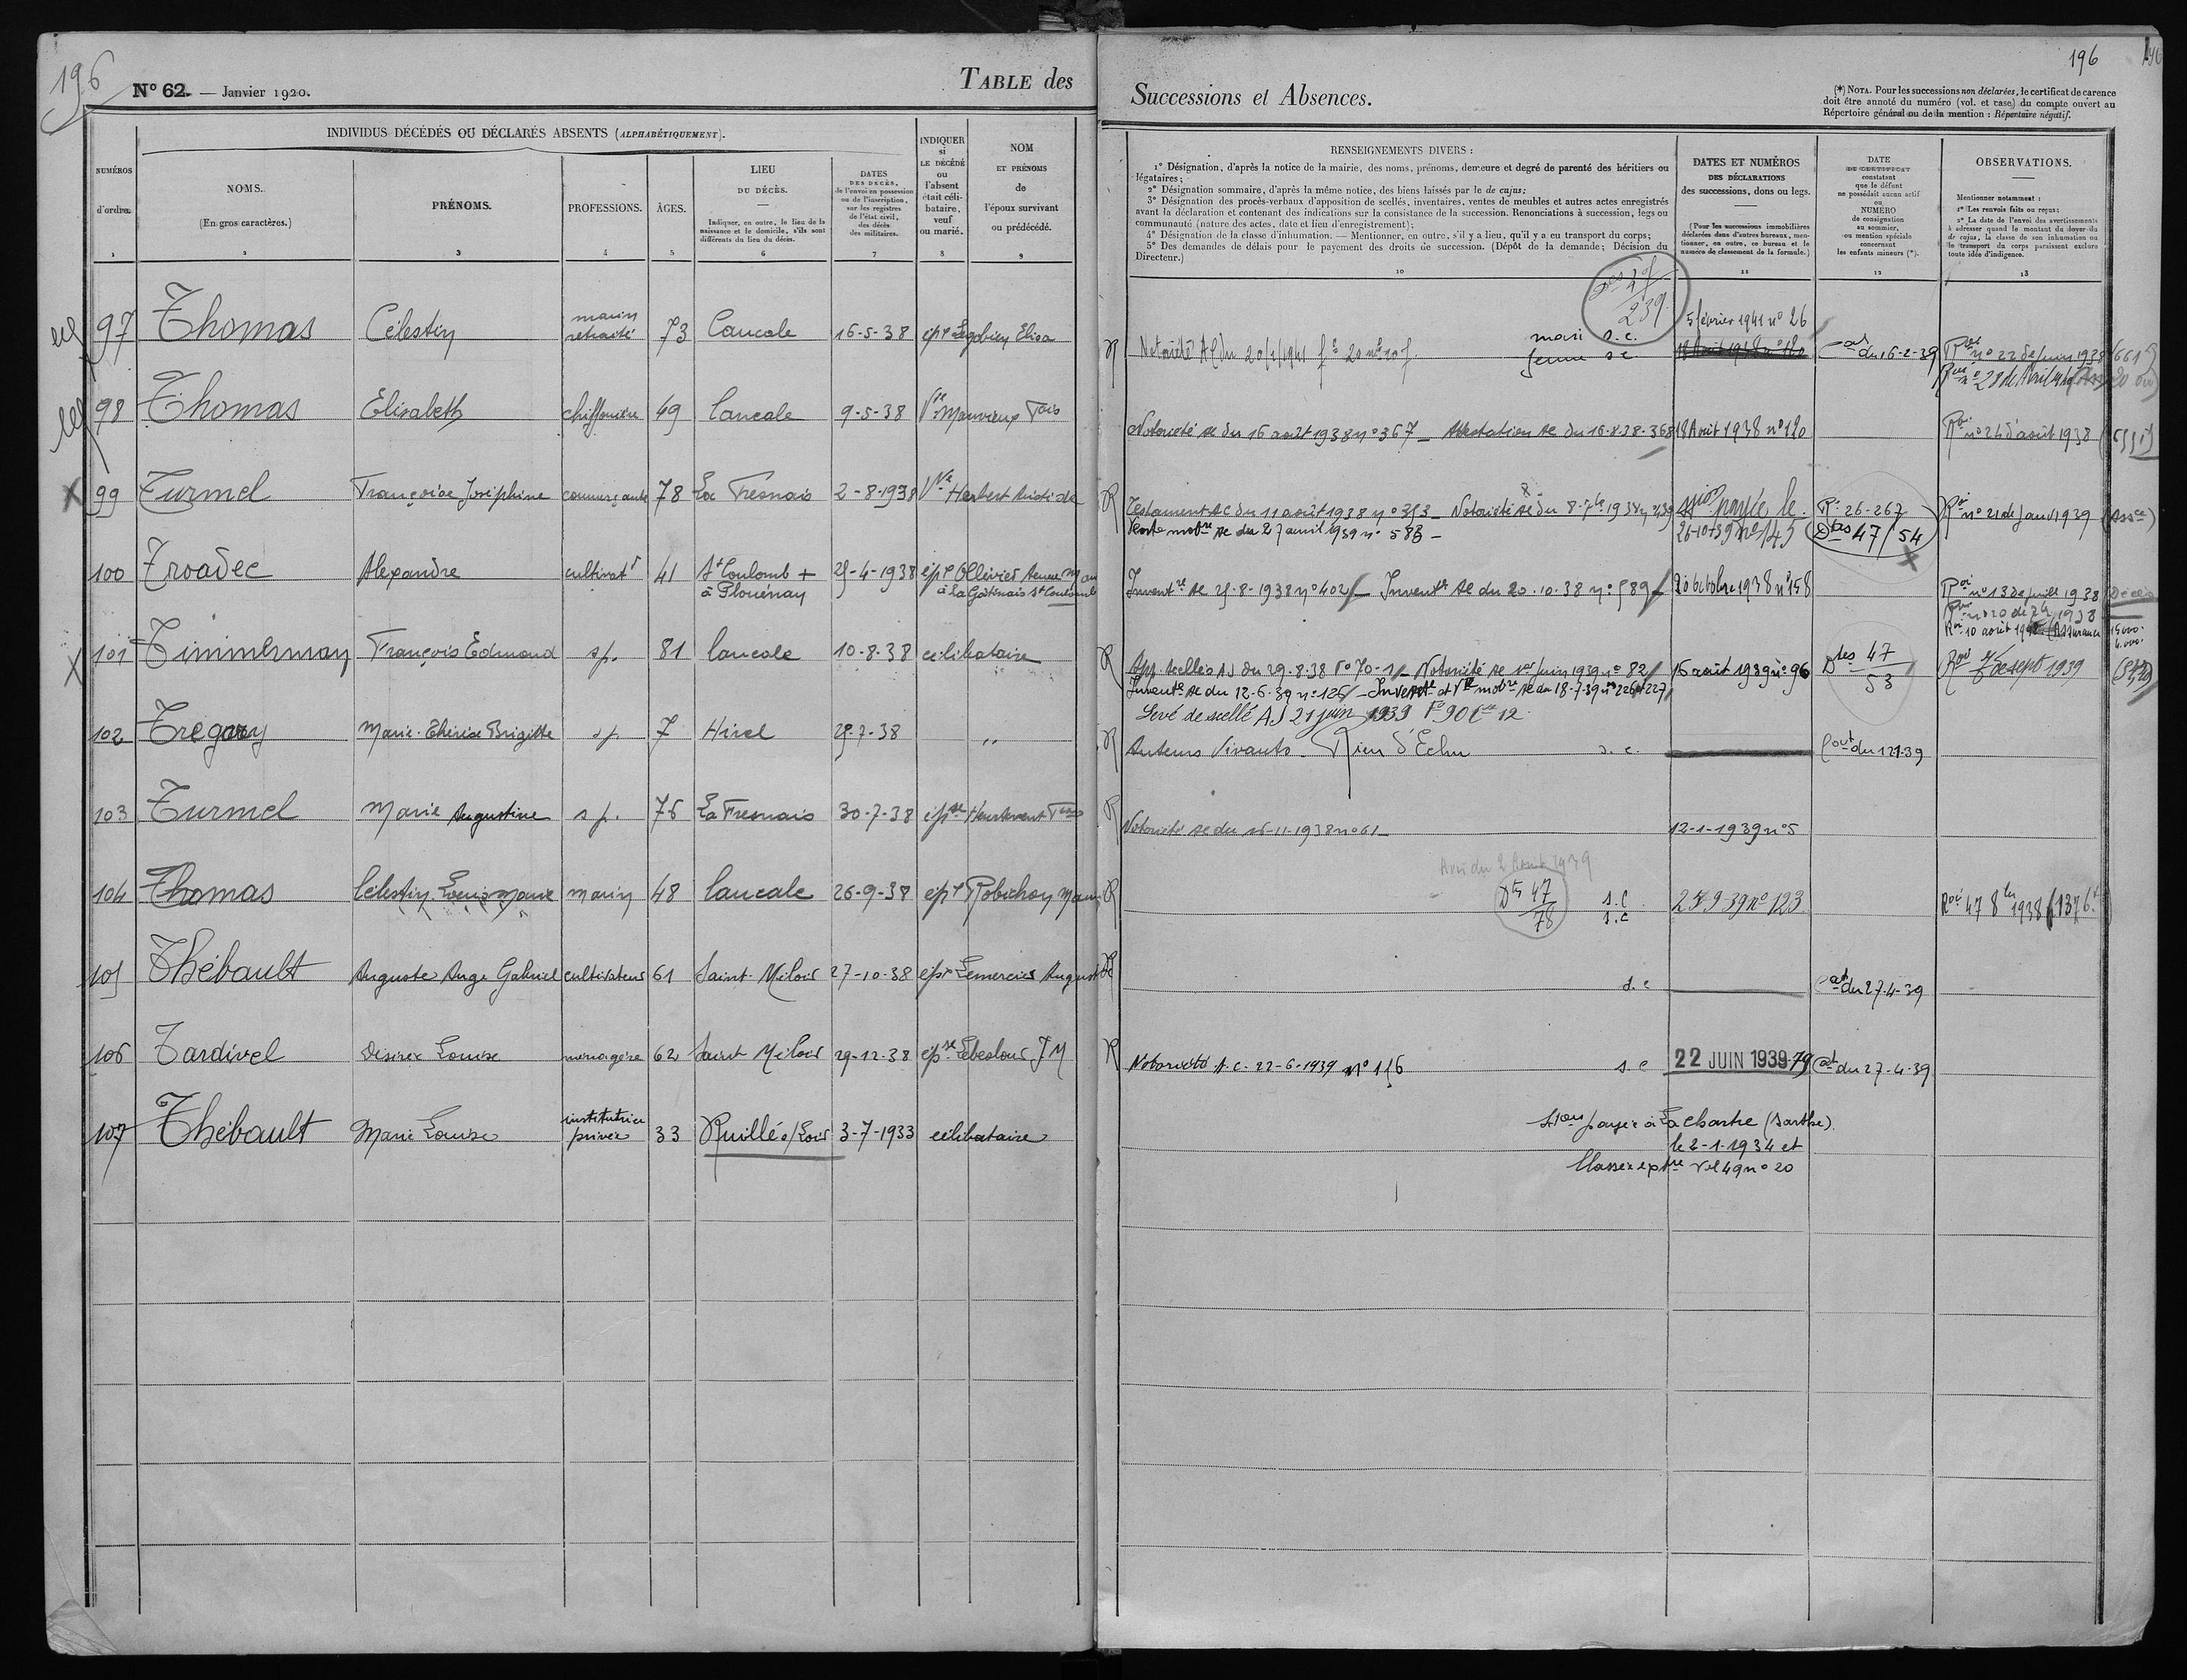 196
N° 62. — Janvier 1920.
TABLE des
INDIVIDUS DÉCÉDÉS OU DÉCLARÉS ABSENTS (ALPHABÉTIQUEMENT).
NUMÉROS
d'ordre.
1
NOMS.
(En gros caractères.)
2
PRÉNOMS.
3
PROFESSIONS.
4
ÂGES.
5
LIEU
DU DÉCÈS.
Indiquer, en outre, le lieu de la
naissance et le domicile, s'ils sont
différents du lieu du décès.
6
DATES
DES DÉCÈS,
de l'envoi en possession
ou de l'inscription,
sur les registres
de l'état civil,
des décès
des militaires.
7
INDIQUER
si
LE DÉCÉDÉ
ou
l'absent
était céli-
bataire,
veuf
ou marié.
8
NOM
ET PRÉNOMS
de
l'époux survivant
ou prédécédé.
9
97 Thomas Célestin marin retraité 73 Cancale 16-5-38 épx Elisa
98 Thomas Elisabeth chiffonière 49 Cancale 9-5-38 Vve Fois
99 Turmel Françoise Joséphine commerçante 78 La Fresnais 2-8-1938 Vve Herbert Aristide
100 Troadec Alexandre cultivatr 41 St Coulomb + 25-4-1938 épx Ollivier
à Plouénay à la Gâtinais St Coulomb
101 Timmerman François Edmond sp. 81 Cancale 10-8-38 célibataire
102 Tregory Marie-Thérèse Brigitte sp. 7 Hirel 25-7-38 "
103 Turmel Marie Augustine sp. 76 La Fresnais 30-7-38 épse Heurtevent Fois
104 Thomas Célestin Louis Marie marin 48 Cancale 26-9-38 épx Robichon
105 Thébault Auguste Ange Gabriel cultivateur 61 Saint-Méloir 27-10-38 épx Lemercier August
106 Tardivel Désirée Louise ménagère 62 Saint Méloir 29-12-38 épse J M
107 Thébault Marie Louise institutrice privée 33 Ruillé s/Loir 3-7-1933 célibataire
196
Successions et Absences.
(*) NOTA. Pour les successions non déclarées, le certificat de carence
doit être annoté du numéro (vol. et case) du compte ouvert au
Répertoire général ou de la mention : Répertoire négatif.
RENSEIGNEMENTS DIVERS :
1° Désignation, d'après la notice de la mairie, des noms, prénoms, demeure et degré de parenté des héritiers ou
légataires;
2° Désignation sommaire, d'après la même notice, des biens laissés par le de cujus;
3° Désignation des procès-verbaux d'apposition de scellés, inventaires, ventes de meubles et autres actes enregistrés
avant la déclaration et contenant des indications sur la consistance de la succession. Renonciations à succession, legs ou
communauté (nature des actes, date et lieu d'enregistrement);
4° Désignation de la classe d'inhumation. — Mentionner, en outre, s'il y a lieu, qu'il y a eu transport du corps;
5° Des demandes de délais pour le payement des droits de succession. (Dépôt de la demande; Décision du
Directeur.)
10
DATES ET NUMÉROS
DES DÉCLARATIONS
des successions, dons ou legs.
(Pour les successions immobilières
déclarées dans d'autres bureaux, men-
tionner, en outre, ce bureau et le
numéro de classement de la formule.)
11
DATE
DU CERTIFICAT
constatant
que le défunt
ne possédait aucun actif
ou
NUMÉRO
de consignation
au sommier,
ou mention spéciale
concernant
les enfants mineurs (*).
12
OBSERVATIONS.
Mentionner notamment :
1° Les renvois faits ou reçus;
2° La date de l'envoi des avertissements
à adresser quand le montant du loyer du
de cujus, la classe de son inhumation ou
le transport du corps paraissent exclure
toute idée d'indigence.
13
239
mari s.c. 5 février 1941 n° 26
R Notoriété AC du 20/1/1941 f° 20 n° 105 femme s.c. 18 Août 1938 n° 120 du 16-2-39 Roi n° 22 de juin 1938
Notoriété Ac du 16 août 1938 n° 367 — Attestation Ac du 16-8-38-368 18 Août 1938 n° 120 Roi n° 24 d'août 1938
R Testament AC du 11 août 1938 n° 353 — Notoriété Ac du 8 7bre 1938 ssion payée le R: 26-267 Roi n° 21 de Janv 1939 (Assce)
Vente mobre Ac du 27 avril 1939 n° 583 — 26-10-39 n° 145 Dtes 47/54
Inventre Ac 25-8-1938 n° 402 — Inventre Ac du 20.10.38 n° 589 20 octobre 1938 n° 158 Roi n° 13 de juillet 1938 Décès
R App. Scellés AJ du 29-8-38 F° 70-1 — Notoriété Ac 1er Juin 1939 n° 82 16 août 1939 n° 96 Dtes 47/53 Roi de sept 1939
Inventre Ac du 12-6-39 n° 126 — Inventre et Vte mobre Ac du 18-7-39 n° 226 et 227
Levé de scellé AJ 21 juin 1939 F° 90 Cse 12
R Auteurs Vivants. Rien d'Echu s.c. du 12-1-39
R Notoriété Ac du 16-11-1938 n° 61 — 12-1-1939 n° 5
Avis du 2 1939
R Dtes 47/78 s.c 25-9-39 n° 123 Roi 47 8bre 1938 (1376
s.c
R s.c du 27-4-39
R Notoriété A.C. 22-6-1939 N° 116 s.c 22 JUIN 1939-79 du 27-4-39
ssion payée à La Chartre (Sarthe)
le 2-1-1934 et
Classée extre Vol 49 n° 20